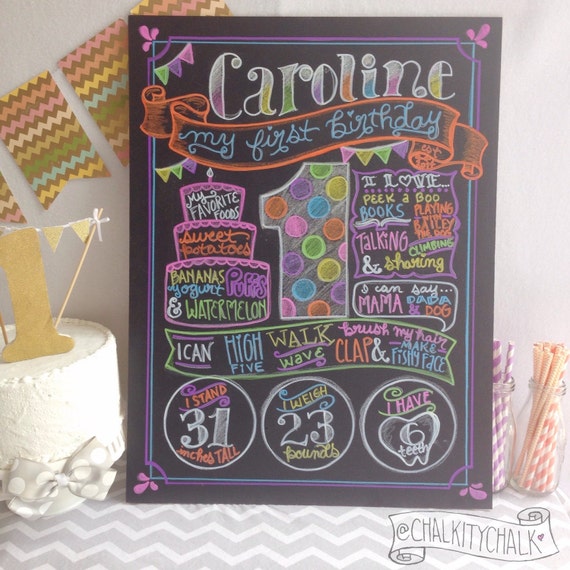 Caroline
my first birthday
MY
FAVORITE
FOODS
sweet
potatoes
BANANAS PUFFS
yogurt
& WATERMELON
1
I LOVE...
PEEK A BOO
BOOKS
PLAYING
with
BAILEY
THE DOG
TALKING
CLIMBING
& sharing
I can say...
MAMA DADA
& DOG
I CAN
HIGH
FIVE
WALK
WAVE
brush my hair
CLAP &
MAKE
FISHY FACE
I STAND
31
inches TALL
I WEIGH
23
pounds
I HAVE
6
teeth
1
@CHALKITYCHALK